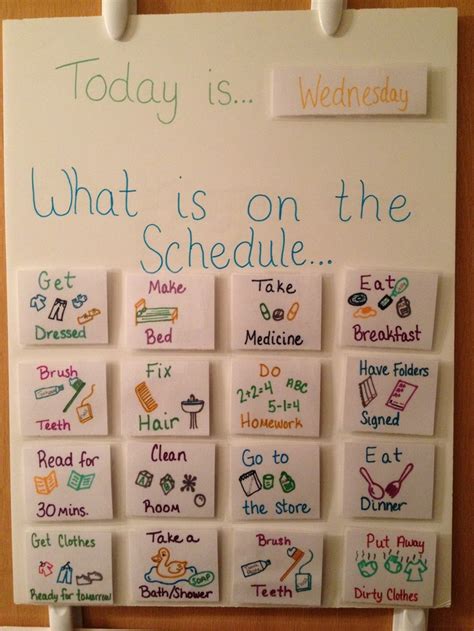 Today is... Wednesday
What is on the
Schedule...
Get
Dressed
Make
Bed
Take
Medicine
Eat
Breakfast
Brush
Teeth
Fix
Hair
Do
2+2=4 ABC
5-1=4
Homework
Have Folders
Signed
Read for
30 mins.
Clean
Room
Go to
the Store
Eat
Dinner
Get Clothes
Ready for tomorrow
Take a
SOAP
Bath/Shower
Brush
Teeth
Put Away
Dirty Clothes